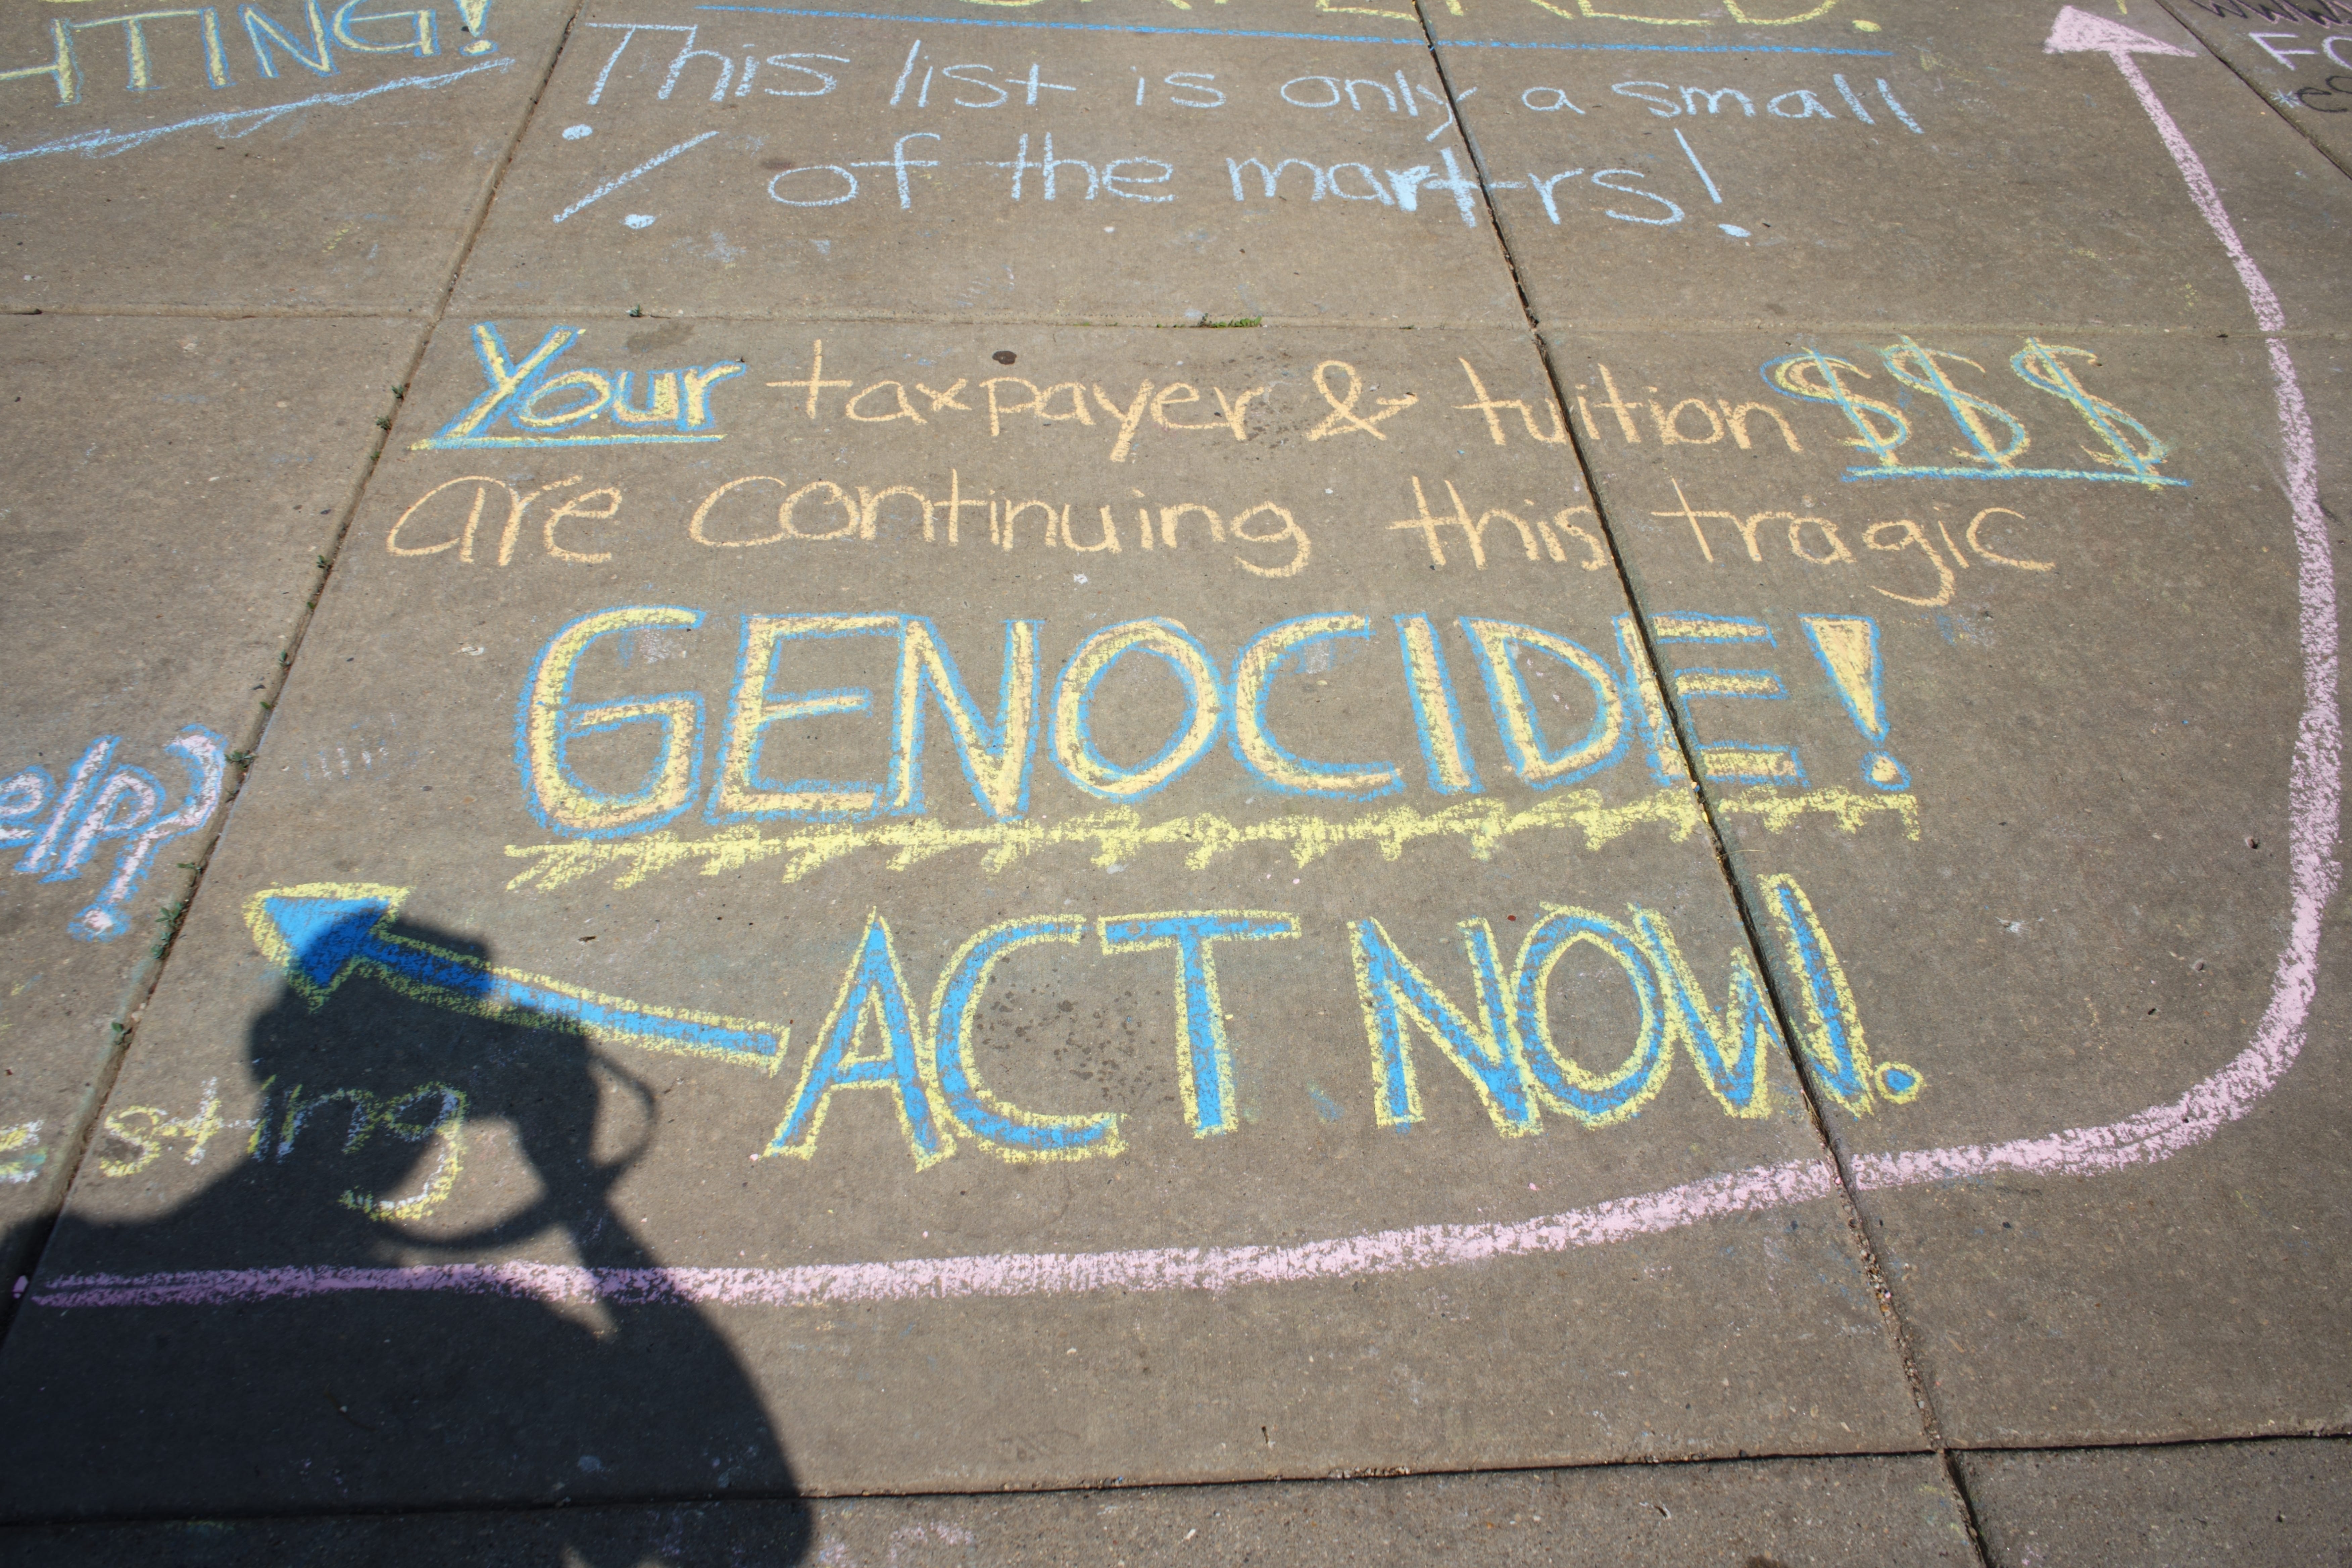 This list is only a small
% of the mart-rs!
Your taxpayer & tuition $$$
are continuing this tragic
GENOCIDE!
ACT NOW.